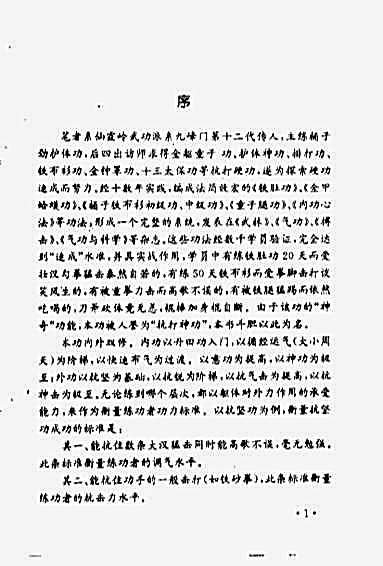 序
笔者系仙霞岭武功派系九峰门第十二代传人，主练桶子
劲护体功，后四出访师求得金躯童子功、护体神功、排打功、
铁布衫功、金钟罩功、十三太保功等抗打硬功，遂为探索硬功
速成而努力。经十数年实践，编成法简效宏的《铁肚功》、《金甲
蛤蟆功》、《桶子铁布衫初级功、中级功》、《童子腿功》、《内功心
法》等功法，形成一个完整的系统，发表在《武林》、《气功》、《搏
击》、《气功与科学》等杂志。这些功法经数千学员验证，完全达
到“速成”水准，并具实战作用，学员中有练铁肚功20天而受
壮汉勾拳猛击泰然自若的，有练50天铁布衫而受拳脚击打谈
笑风生的，有被重拳力击而高歌不误的，有被铁腿猛踢而依然
吃喝的，刀斧砍体竟无恙，棍棒加身棍自断。由于该功的“神
奇”功能，本功被人誉为“抗打神功”，本书斗胆以此为名。
本功内外双修。内功以外田功入门，以循经运气（大小周
天）为阶梯，以快速布气为过渡。以意功为提高，以神功为极
至；外功以抗坚为基础，以抗锐为阶梯，以抗气击为提高，以抗
神击为极至，无论练到哪个层次，都以躯体对外力作用的承受
能力，来作为衡量练功者功力标准。以抗坚功为例，衡量抗坚
功成功的标准是：
其一、能抗住数条大汉猛击同时能高歌不误，毫无勉强。
此条标准衡量练功者的调气水平。
其二、能抗住功手的一般击打（如铁砂掌），此条标准衡量
练功者的抗击力水平。
·1·